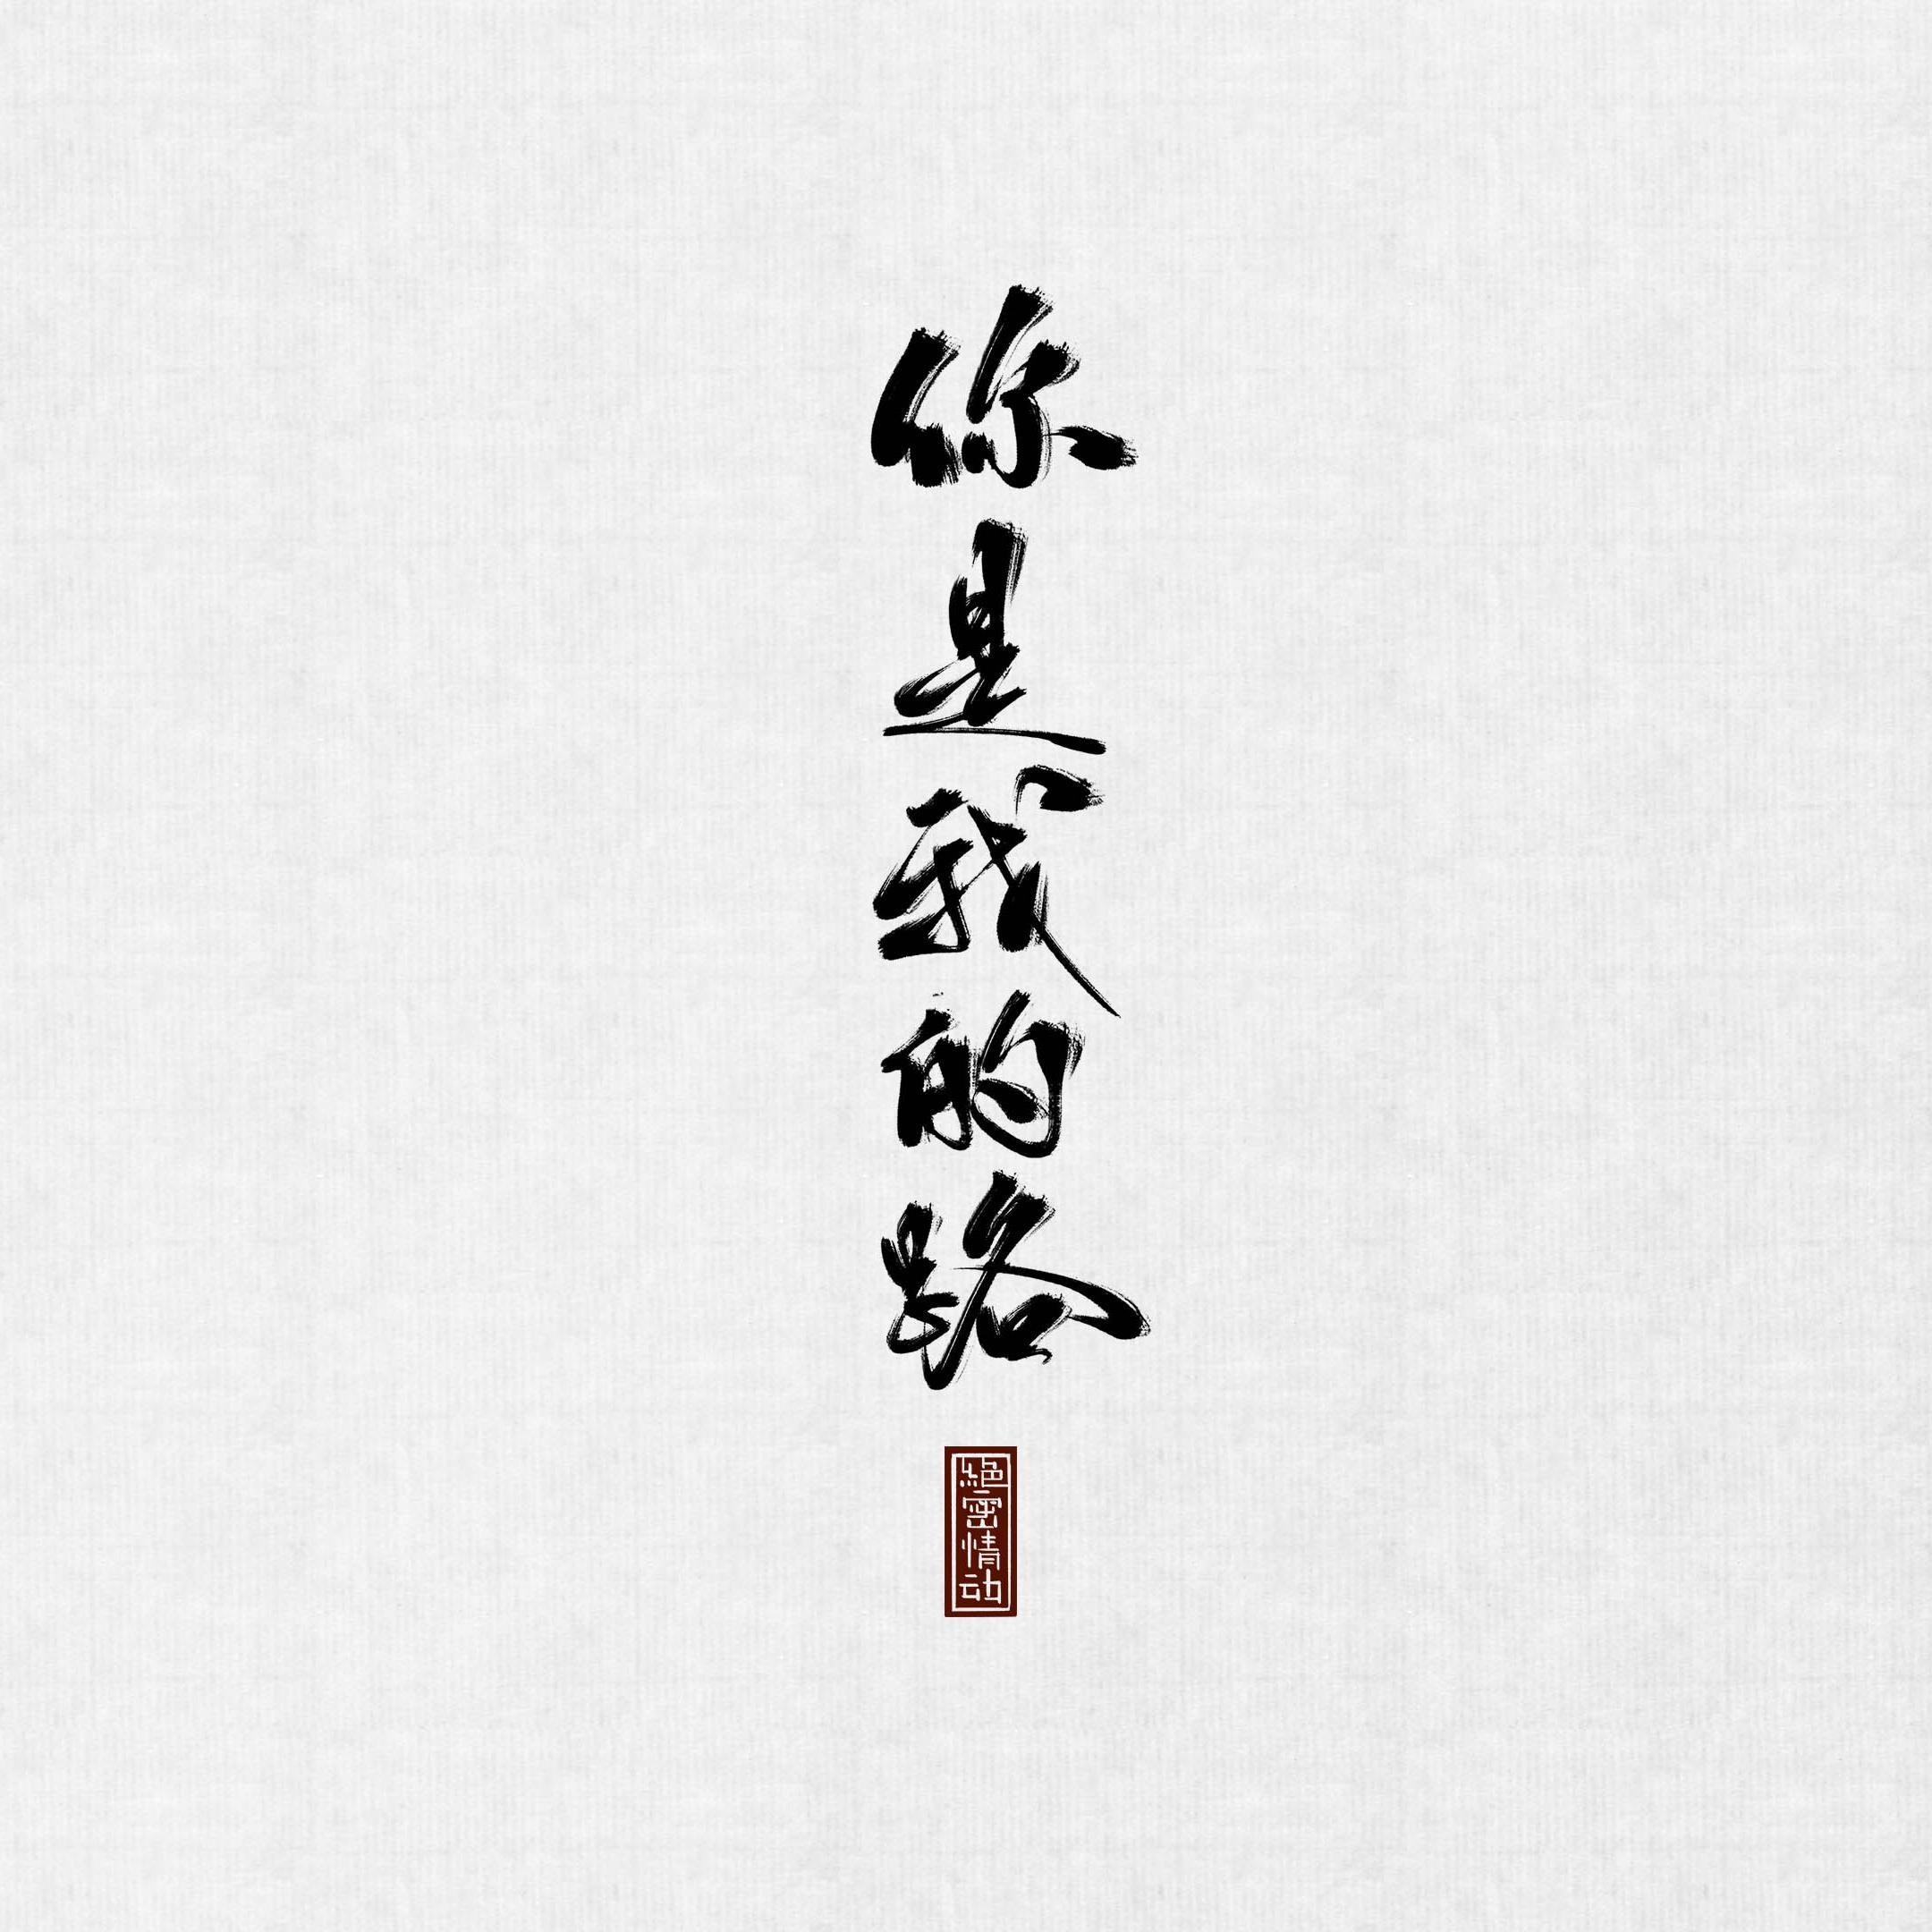 你是我的路
絕密情动